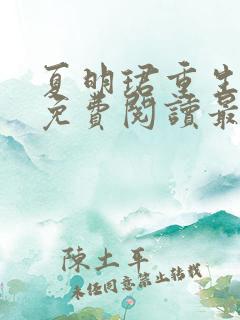 夏明珺重生
免費閱讀最
陳土平
未經同意禁止轉載